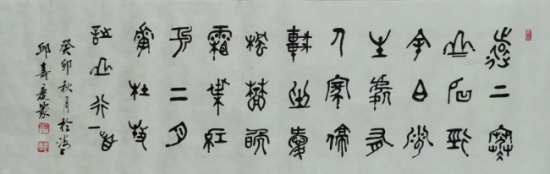 遠上寒
山石徑
斜白雲
生處有
人家停
車坐愛
楓林晚
霜葉紅
于二月
華杜牧
詩山行一首
癸卯秋月於
邱壽